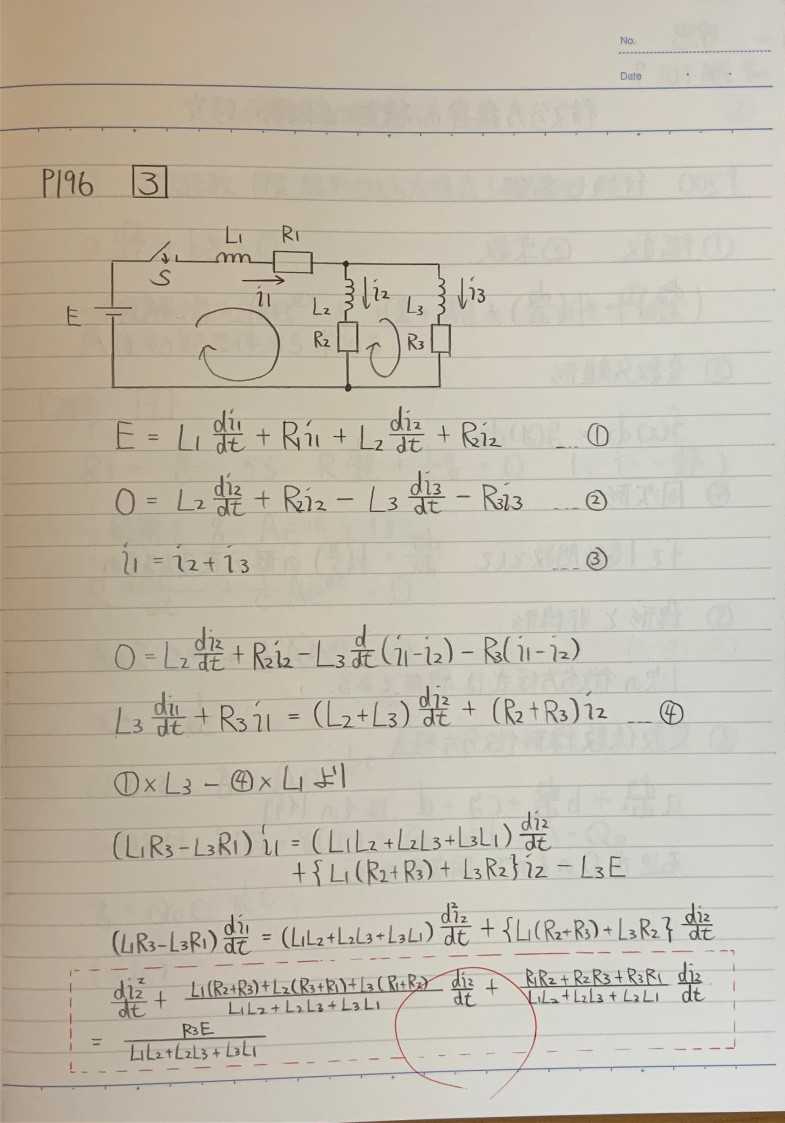 No.
Date
P196 3
L1 R1
S
i1 i2 i3
E L2 L3
R2 R3
E = L1 di1/dt + R1i1 + L2 di2/dt + R2i2 ... ①
0 = L2 di2/dt + R2i2 - L3 di3/dt - R3i3 ... ②
i1 = i2 + i3 ... ③
0 = L2 di2/dt + R2i2 - L3 d/dt (i1-i2) - R3(i1-i2)
L3 di1/dt + R3i1 = (L2+L3) di2/dt + (R2+R3)i2 ... ④
①×L3 - ④×L1 より
(L1R3-L3R1)i1 = (L1L2+L2L3+L3L1) di2/dt
+{L1(R2+R3)+L3R2}i2 - L3E
(L1R3-L3R1) di1/dt = (L1L2+L2L3+L3L1) d²i2/dt + {L1(R2+R3)+L3R2} di2/dt
di2²/dt + L1(R2+R3)+L2(R3+R1)+L3(R1+R2)/L1L2+L2L3+L3L1 di2/dt + R1R2+R2R3+R3R1/L1L2+L2L3+L2L1 di2/dt
= R3E/L1L2+L2L3+L3L1